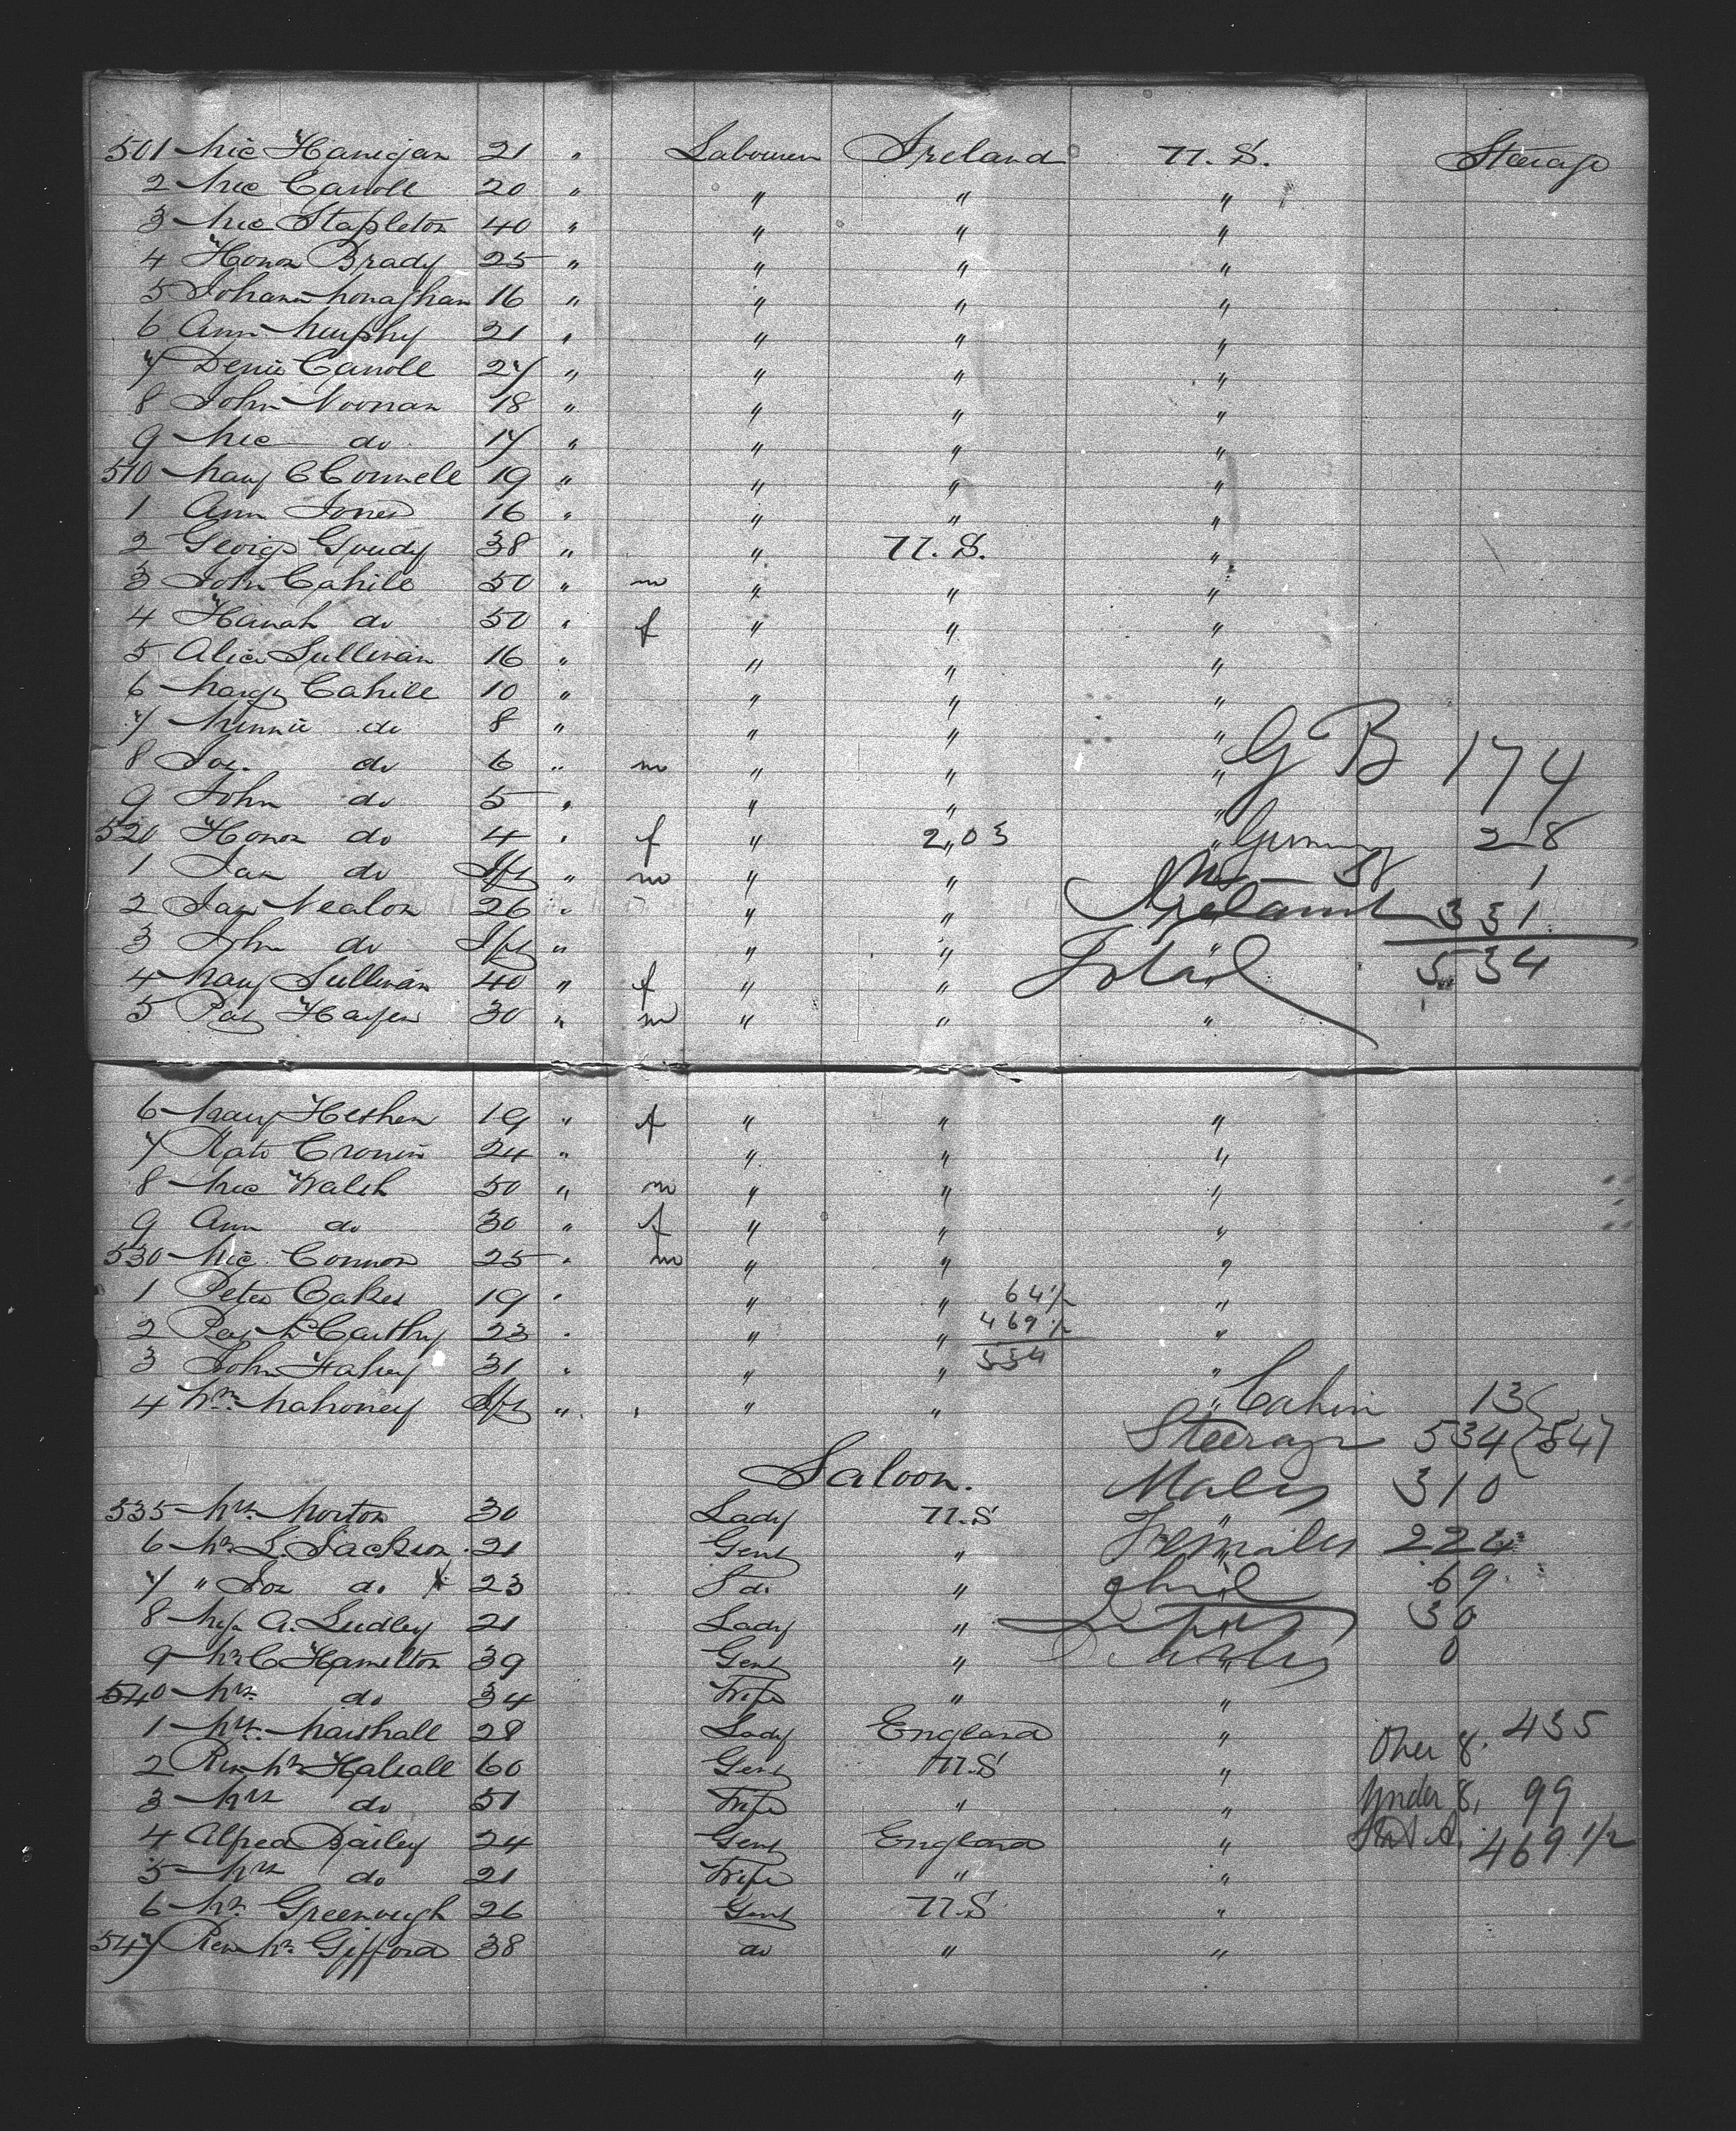 501 Mic Hanigan 21 " Labourer Ireland U.S. Steerage
2 Mic Carroll 20 " " " "
3 Mic Stapleton 40 " " " "
4 Honor Brady 25 " " " "
5 Johana Monaghan 16 " " " "
6 Ann Murphy 21 " " " "
7 Denis Carroll 27 " " " "
8 John Noonan 18 " " " "
9 Mic do 17 " " " "
510 Mary O'Connell 19 " " " "
1 Ann Jones 16 " " " "
2 George Goudy 38 " " U.S. "
3 John Cahill 50 " m " " "
4 Hanah do 50 " f " " "
5 Alice Sullivan 16 " " " "
6 Margt Cahill 10 " " " "
7 Minnie do 8 " " " "
8 Jos. do 6 " m " " " G B 174
9 John do 5 " " " "
520 Honor do 4 " f " 203 " Germany 28
1 Jam do Ift " m " " 1
2 Jas Nealon 26 " " " Ireland 331
3 John do Ift " " " "
4 Mary Sullivan 40 " f " " " Total 534
5 Pat Hayes 30 " m " " "
6 Mary 19 " f " " "
7 Kate Cronin 24 " " " "
8 Mic Walsh 50 " m " " "
9 Ann do 30 " f " " "
530 Mic Connor 25 " m " " "
1 Peter Oakes 19 " " " 64 1/2 "
2 Pat McCarthy 23 " " " 469 1/2 "
3 John Fahey 31 " " " 534 "
4 Wm Mahoney Ift " " " " Cabin 13
Steerage 534 547
Saloon. Males 310
535 Mrs. Morton 30 Lady U.S "
6 Mr L. Jackson 21 Gent " Females 224
7 " Jos do 23 do " Chil 69
8 Miss A. Ludley 21 Lady " Infts 30
9 Mr C Hamilton 39 Gent " Deaths 0
540 Mrs. do 34 Wife " "
1 Mrs. Marshall 28 Lady England "
Over 8. 435
2 Rev Mr Halsall 60 Gent U.S "
3 Mrs do 51 Wife " " Under 8, 99
4 Alfred Bailey 24 Gent England " Stat A. 469 1/2
5 Mrs do 21 Wife " "
6 Mr. Greenough 26 Gent U.S "
547 Rev Mr Gifford 38 do " "